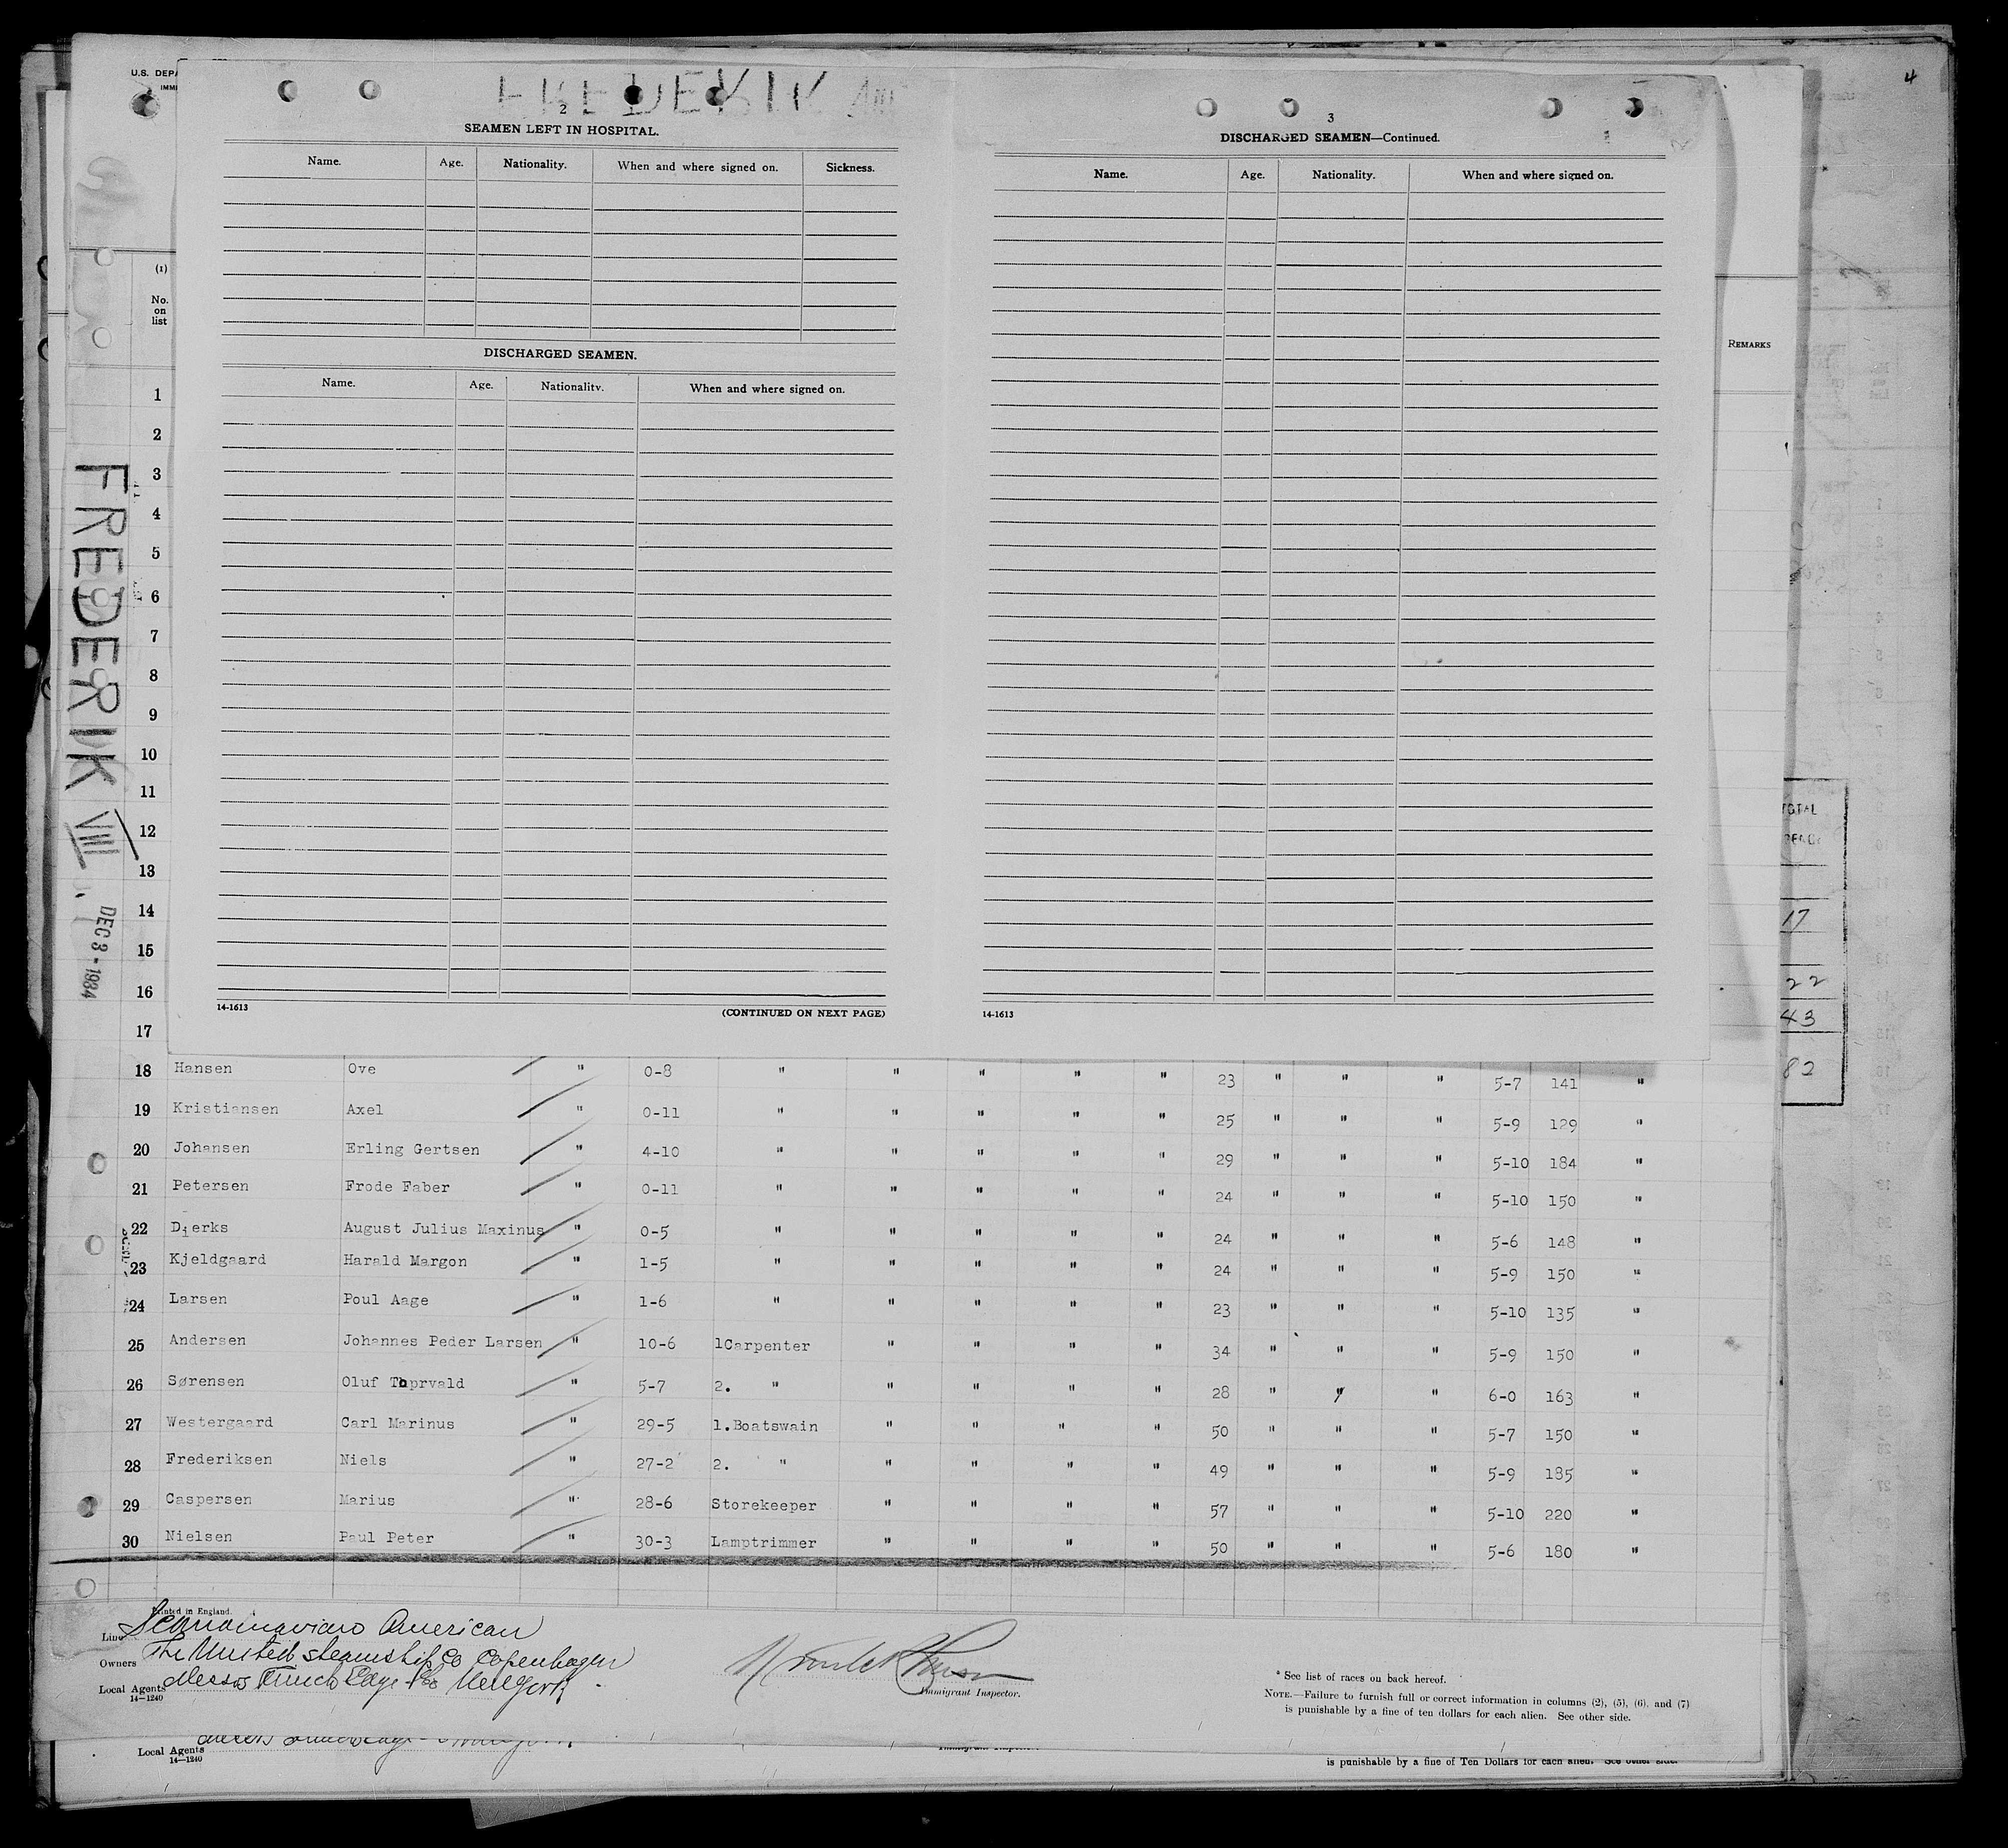 4
U.S. DEPA
IMMI
FREDERIK
2
SEAMEN LEFT IN HOSPITAL.
Name. Age. Nationality. When and where signed on. Sickness.
DISCHARGED SEAMEN.
Name. Age. Nationality. When and where signed on.
14-1613 (CONTINUED ON NEXT PAGE)
3
DISCHARGED SEAMEN—Continued.
Name. Age. Nationality. When and where signed on.
14-1613
(1)
No.
on
list
REMARKS
1
2
3
4
5
6
7
8
9
10
11
12
13
14
15
16
17
FREDERIK VIII.
DEC 3-1934
TOTAL
17
22
43
82
18 Hansen Ove " 0-8 " " " " " 23 " " " 5-7 141 "
19 Kristiansen Axel " 0-11 " " " " " 25 " " " 5-9 129 "
20 Johansen Erling Gertsen " 4-10 " " " " " 29 " " " 5-10 184 "
21 Petersen Frode Faber " 0-11 " " " " " 24 " " " 5-10 150 "
22 Dierks August Julius Maxinus " 0-5 " " " " " 24 " " " 5-6 148 "
23 Kjeldgaard Harald Margon " 1-5 " " " " " 24 " " " 5-9 150 "
24 Larsen Poul Aage " 1-6 " " " " " 23 " " " 5-10 135 "
25 Andersen Johannes Peder Larsen " 10-6 1Carpenter " " " " 34 " " " 5-9 150 "
26 Sørensen Oluf Thprvald " 5-7 2. " " " " " 28 " " " 6-0 163 "
27 Westergaard Carl Marinus " 29-5 1.Boatswain " " " " 50 " " " 5-7 150 "
28 Frederiksen Niels " 27-2 2. " " " " " 49 " " " 5-9 185 "
29 Caspersen Marius " 28-6 Storekeeper " " " " 57 " " " 5-10 220 "
30 Nielsen Paul Peter " 30-3 Lamptrimmer " " " " 50 " " " 5-6 180 "
Printed in England.
Line Scandinavian American
Owners The United steamship Co Copenhagen
Local Agents Messrs Funch Edye & Co New York.
14—1240
Immigrant Inspector.
* See list of races on back hereof.
NOTE.—Failure to furnish full or correct information in columns (2), (5), (6), and (7)
is punishable by a fine of ten dollars for each alien. See other side.
Local Agents
14—1240
is punishable by a fine of Ten Dollars for each alien. See other side.